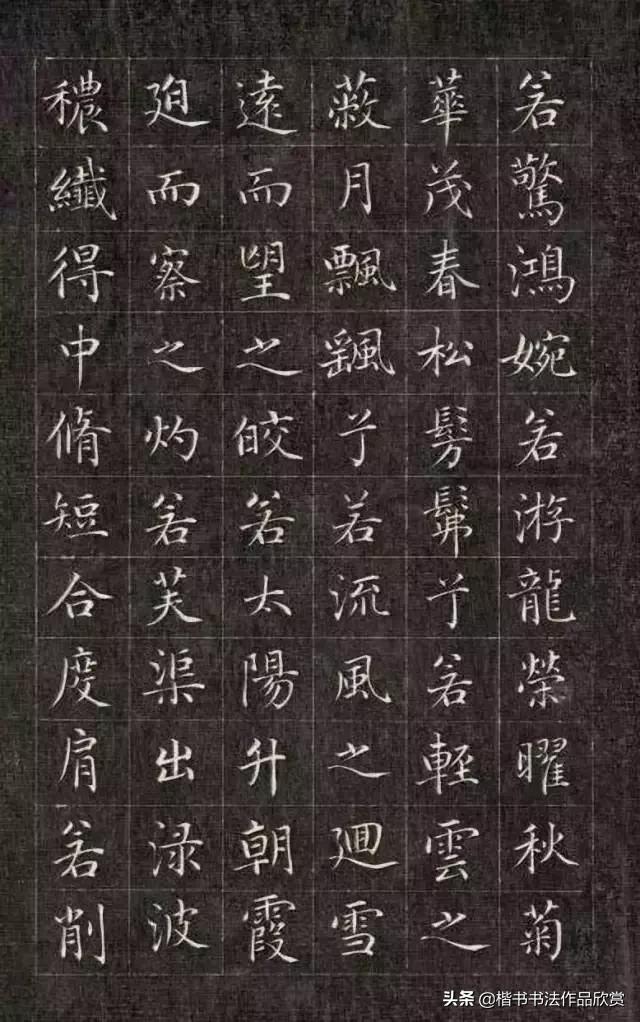 若驚鴻婉若游龍榮曜秋菊
華茂春松髣髴兮若輕雲之
蔽月飄颻兮若流風之廻雪
遠而望之皎若太陽升朝霞
廹而察之灼若芙渠出淥波
穠纖得中脩短合度肩若削
头条 @楷书书法作品欣赏